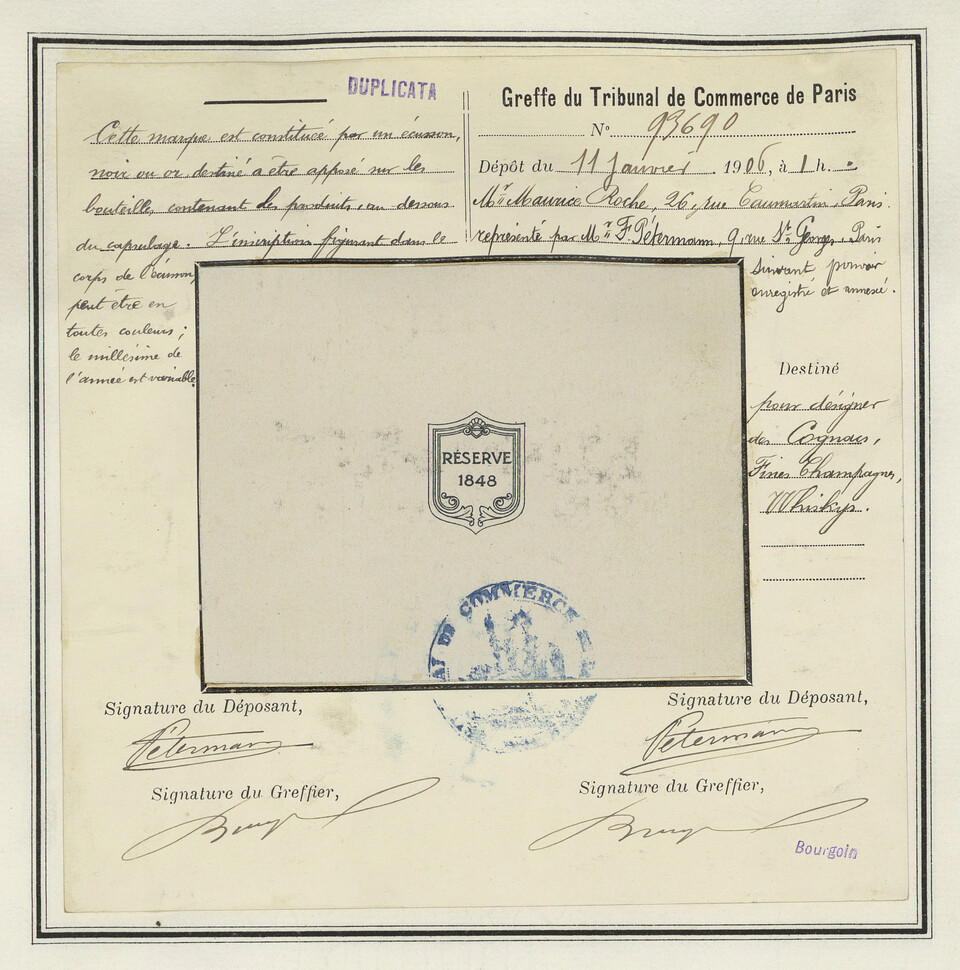 DUPLICATA
Cette marque est constituée par un écusson,
noir ou or, destiné à être apposé sur les
bouteilles contenant les produits, au dessous
du capsulage. L'inscription figurant dans le
corps de l'écusson,
peut être en
toutes couleurs ;
le millésime de
l'année est variable.
Greffe du Tribunal de Commerce de Paris
N° 93690
Dépôt du 11 Janvier 1906, à 1 h. "
Mr Maurice Roche, 26, rue Caumartin, Paris.
représenté par Mr F. Pétermann, 9, rue St Georges, Paris
suivant pouvoir
enregistré et annexé.
Destiné
pour désigner
des Cognacs,
Fines Champagnes,
Whiskys.
RÉSERVE
1848
AL DE COMMERCE
Signature du Déposant,
Péterman
Signature du Greffier,
Signature du Déposant,
Péterman
Signature du Greffier,
Bourgoin